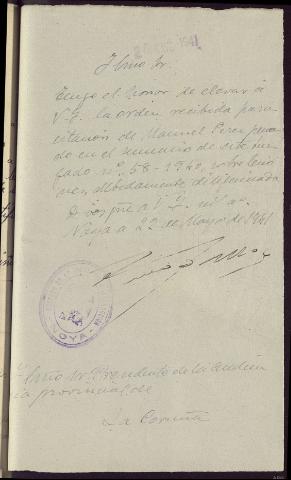 Iltmo Sr.
Tengo el honor de elevar á
V.E. la orden recibida para
citación de Manuel Perez
do en el sumario de este juz-
gado nº 58-1940, sobre lesio-
nes, debidamente diligenciada
Dios gue a V. I. m. a.
Noya a 22 de Mayo de 1941
NOYA
Iltmo Sr. Presidente de la Audien
cia provincial de
La Coruña